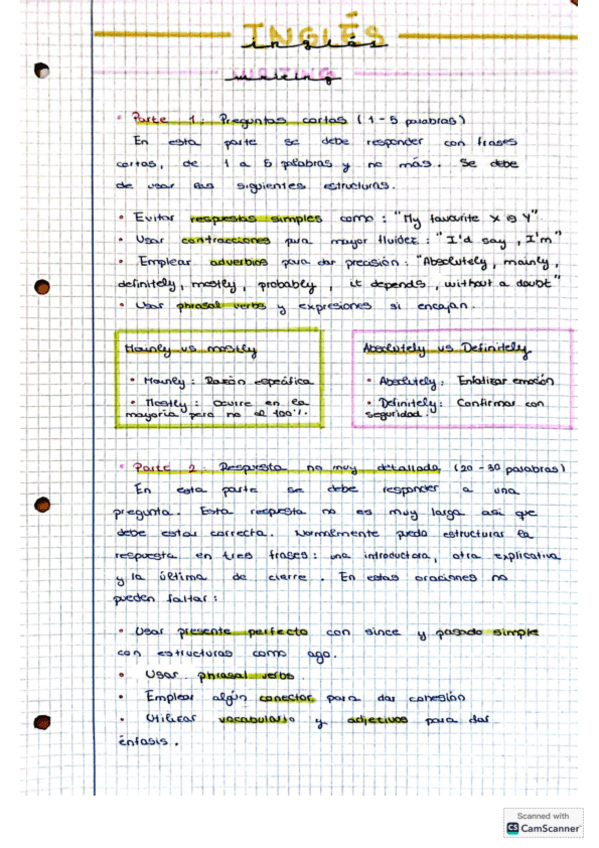 INGLÉS
inglés
WRITING
writing
• Parte 1: Preguntas cortas (1-5 palabras)
En esta parte se debe responder con frases
cortas, de 1 a 5 palabras y no más. Se debe
de usar las siguientes estructuras.
• Evitar respuestas simples como: "My favourite X is Y".
• Usar contracciones para mayor fluidez: "I'd say, I'm"
• Emplear adverbios para dar precisión: "Absolutely, mainly,
definitely, mostly, probably, it depends, without a doubt"
• Usar phrasal verbs y expresiones si encajan.
Mainly vs mostly
• Mainly: Razón específica
• Mostly: Ocurre en la
mayoría pero no al 100%.
Absolutely vs Definitely
• Absolutely: Enfatizar emoción
• Definitely: Confirmar con
seguridad.
• Parte 2: Respuesta no muy detallada (20-30 palabras)
En esta parte se debe responder a una
pregunta. Esta respuesta no es muy larga así que
debe estar correcta. Normalmente puedo estructurar la
respuesta en tres frases: una introductora, otra explicativa
y la última de cierre. En estas oraciones no
pueden faltar:
• Usar presente perfecto con since y pasado simple
con estructuras como ago.
• Usar phrasal verbs.
• Emplear algún conector para dar cohesión
• Utilizar vocabulario y adjetivos para dar
énfasis.
Scanned with
CS CamScanner